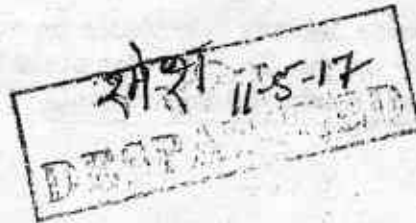 रमेश 11-5-17
DESPATCHED